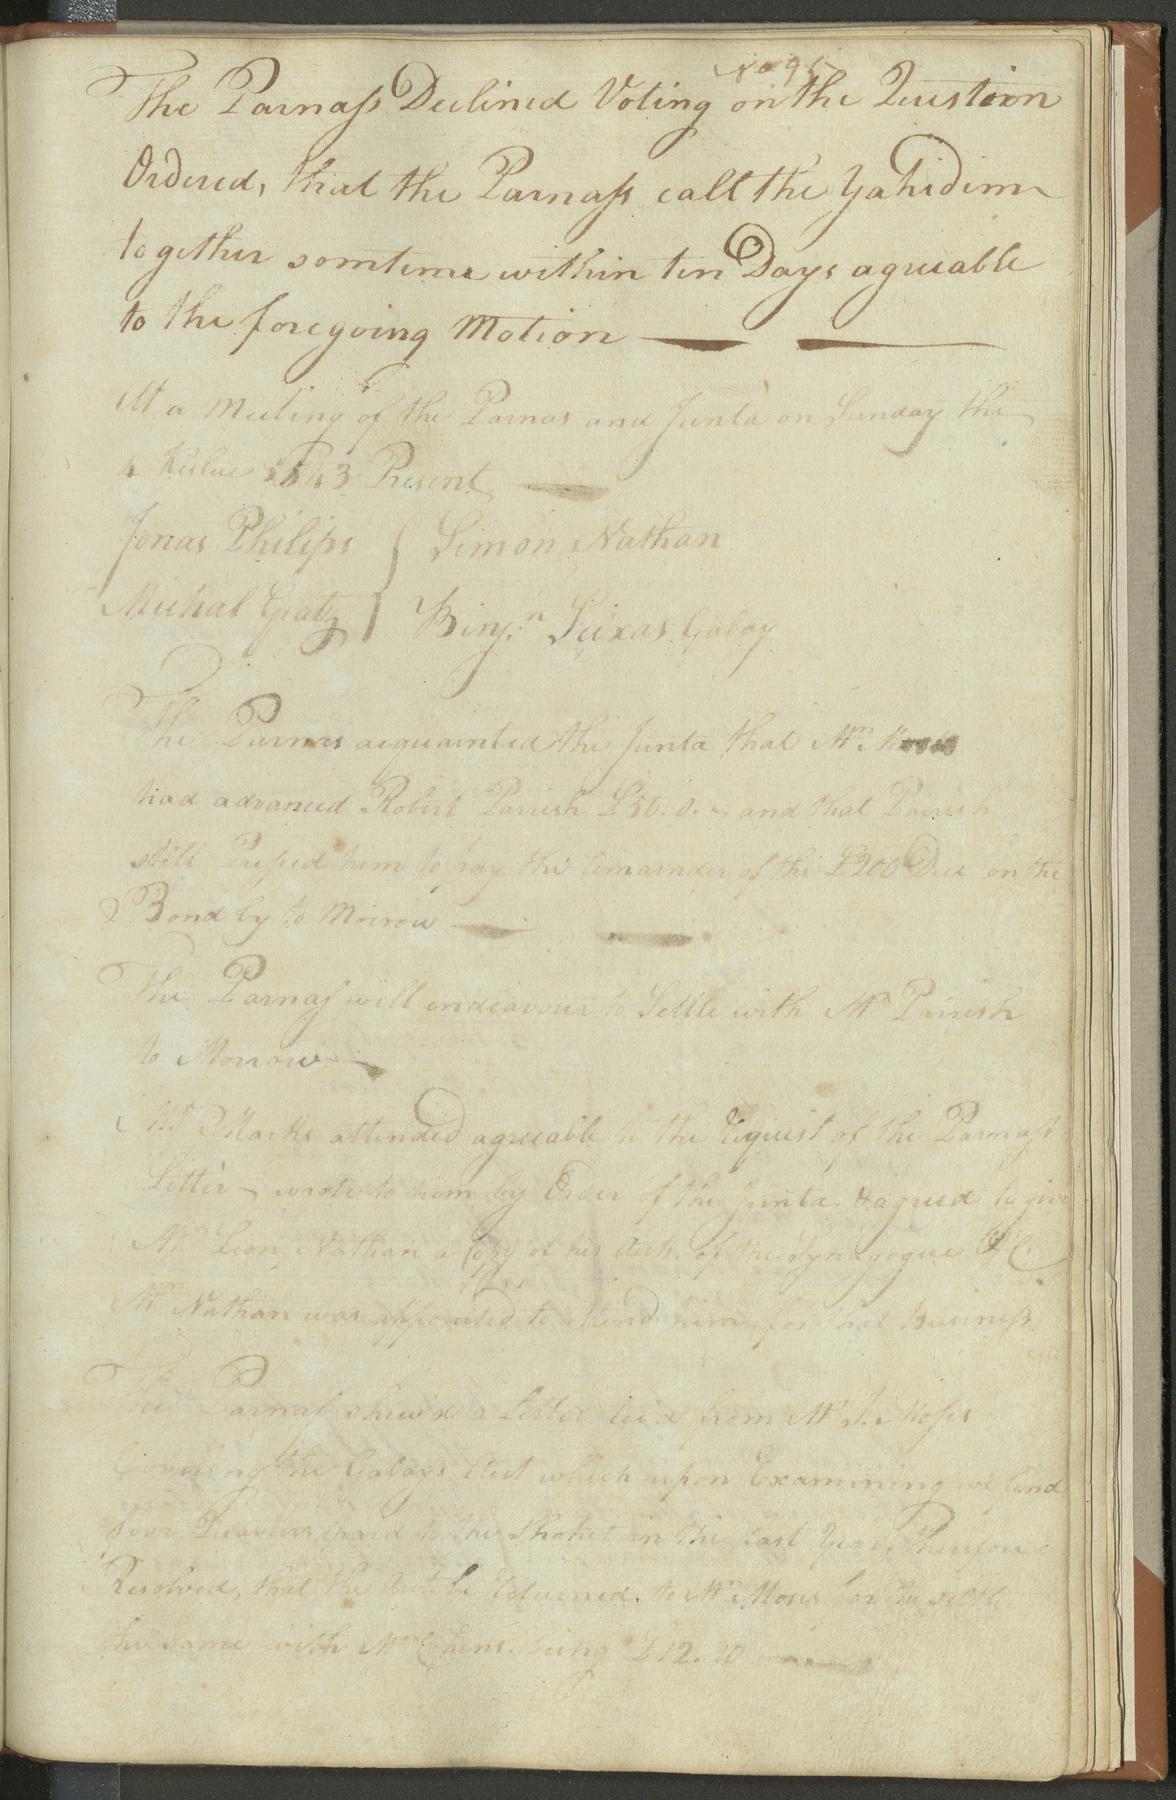 The Parnass Declined Voting on the Question
Ordered, that the Parnass call the Yahidim
together somtime within ten Days agreable
to the foregoing Motion
At a Meeting of the Parnas and Junta on Sunday the
4 Kislue 5543 Present
Jonas Philips Simon Nathan
Michal Gratz Binjn. Seixas Gabay
The Parnas acquainted the Junta that Mr.
had advanced Robert Parrish £50.0. and that Parrish
still Pressed him to pay the remainder of the £200 Due on the
Bond by to Morrow
The Parnass will endeavour to Settle with Mr Parrish
to Morrow
Mr Marks attended agreeable to the Request of the Parnass
Letter wrote to him by Order of the Junta & agreed to give
Mr Lion Nathan a Copy of his Acts. of the Synagogue &C.
Mr Nathan was appointed to attend him for that Business
The Parnass shew'd a Letter rec'd from Mr I. Moses
Covering the Gabays Acct which upon Examining we find
four Quarters paid to the Shohet in the last Year, therefore
Resolved, that the Acct be Returned to Mr Moses for to settle
the same with Mr Cohens. being £12.10